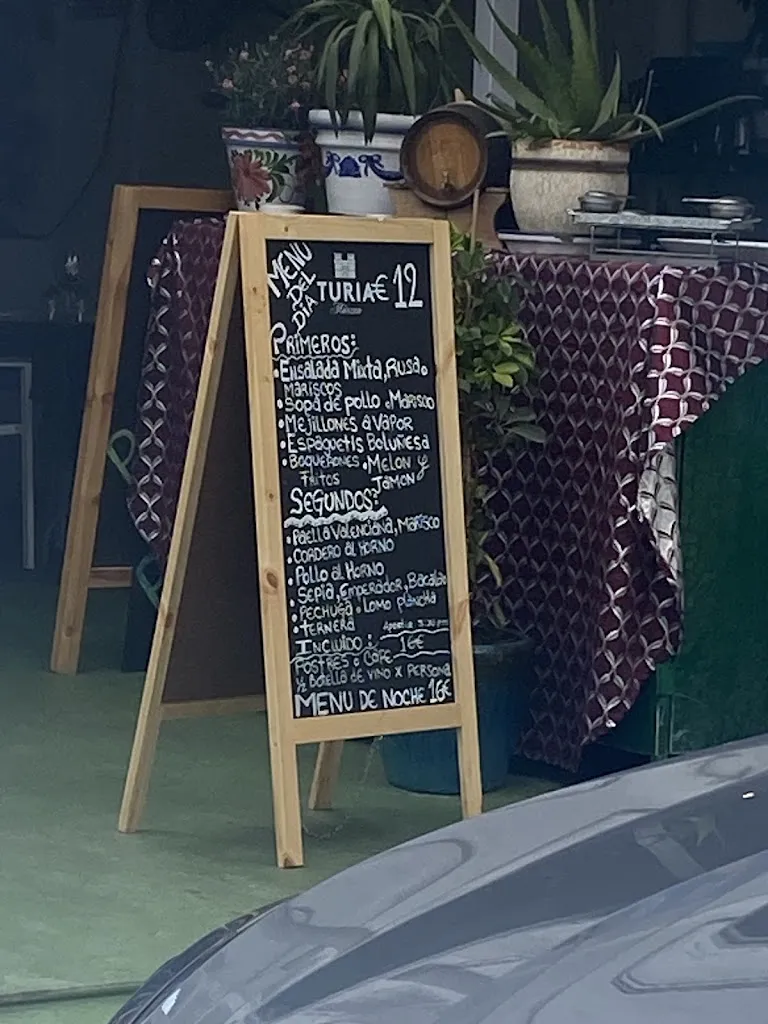 MENU DEL DIA
TURIA € 12
PRIMEROS:
• ENSALADA MIXTA, RUSA o
MARISCOS
• SOPA DE POLLO o MARISCO
• MEJILLONES A VAPOR
• ESPAGUETIS BOLUÑESA
• BOQUERONES • MELON Y
FRITOS JAMON
SEGUNDOS:
• PAELLA VALENCIANA, MARISCO
• CORDERO AL HORNO
• POLLO AL HORNO
• SEPIA, EMPERADOR, BACALAO
• PECHUGA • LOMO PLANCHA
• TERNERA
INCLUIDO: 16€
POSTRES o CAFE
½ BOTELLA DE VINO X PERSONA
MENU DE NOCHE 16€